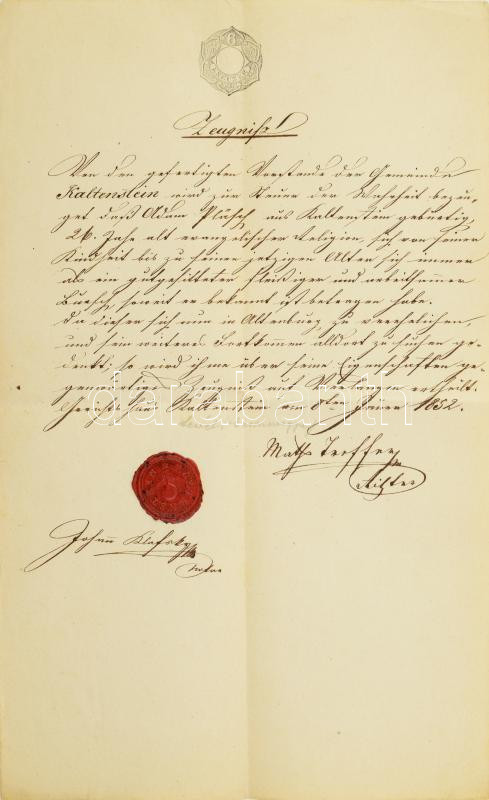 6
Zeugniß
Von dem gefertigten Vorstande der Gemeinde
Kaltenstein wird zur Steuer der Wahrheit bezeu-
get daß Adam Plüsch, aus Kaltenstein gebürtig,
26. Jahr alt evangelischer Religion, sich von seiner
Kindheit bis zu seinen jetzigen Alter sich immer
als ein gutgesitteter fleißiger und arbeitsamer
Bursch, soweit er bekannt ist betragen habe.
Da dieser sich nun in Altenburg zu verehelichen,
und sein weiteres Fortkommen alldort zu suchen ge-
denkt; so wird ihme über seine Eigenschaften ge-
genwärtiges Zeugniß auf Verlangen ertheilt.
Kaltenstein am 8ten Jänner 1852.
darabanth
Maths Treffer
Richter
Johan Klafsky
Notar